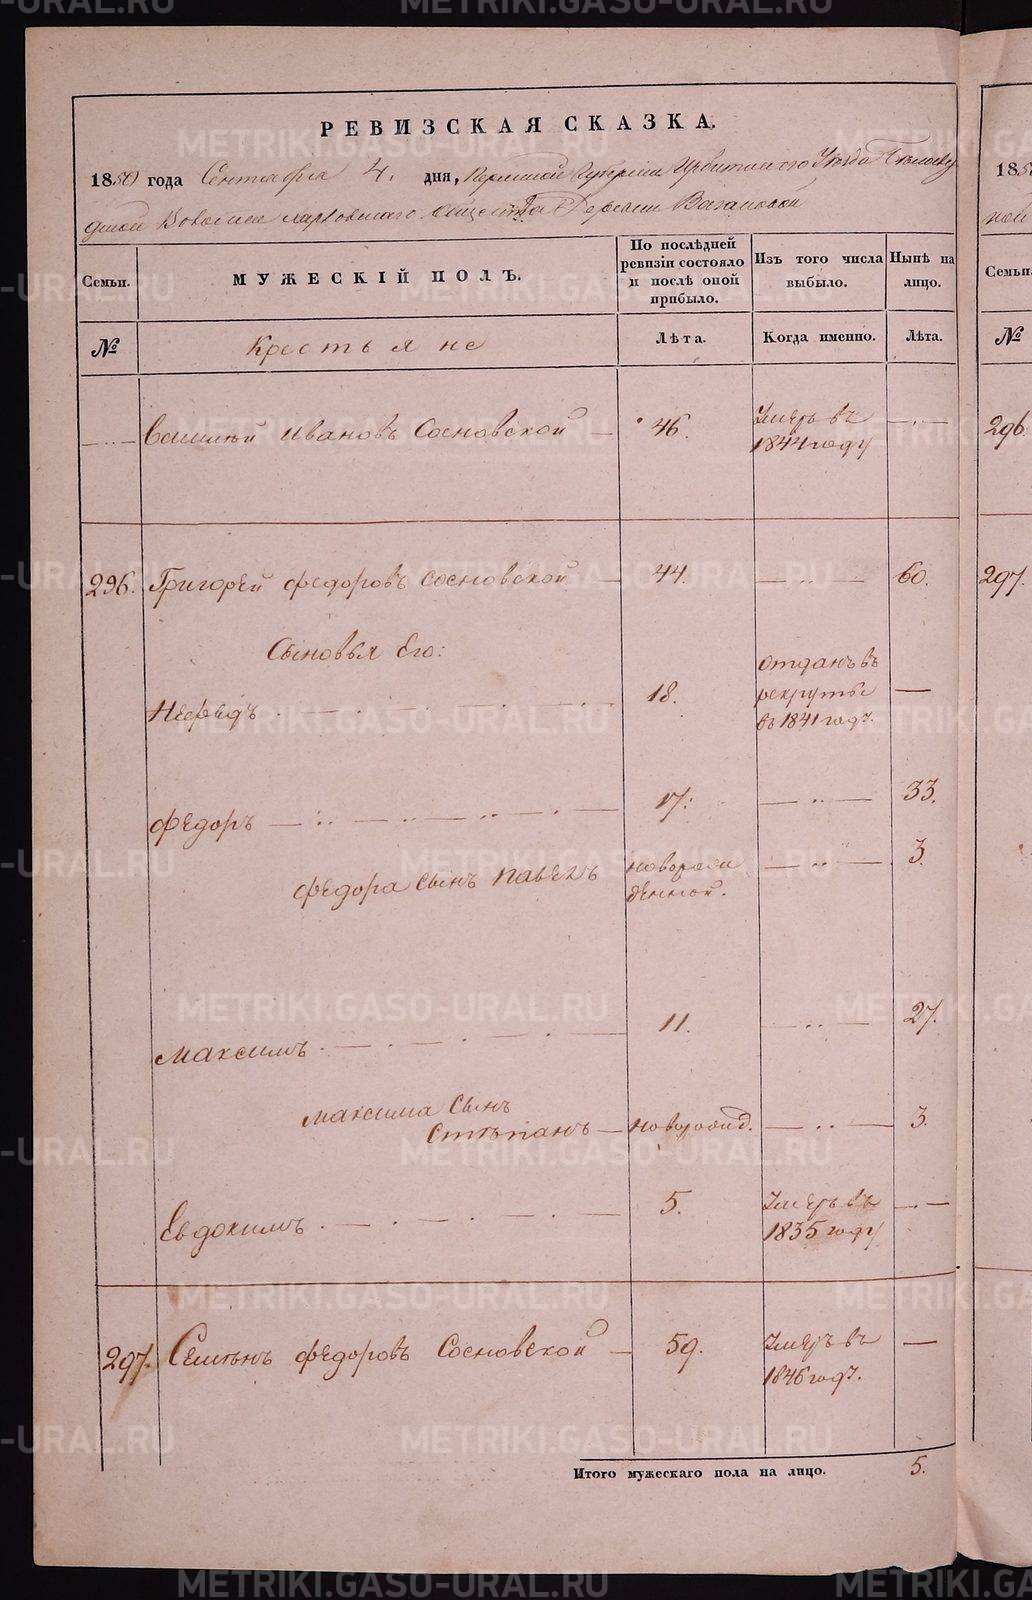 РЕВИЗСКАЯ СКАЗКА.
1850 года Сентября 4. дня, Пермской Губернии Ирбитского Уезда
Волости общества Деревни Вагановой
Семьи.
МУЖЕСКІЙ ПОЛЪ.
По послѣдней ревизіи состояло и послѣ оной прибыло.
Изъ того числа выбыло.
Нынѣ на лицо.
№
Крестьяне
Лѣта.
Когда именно.
Лѣта.
Ивановъ Сосновской 46. Умеръ въ 1844 году
296. Григорей Федоровъ Сосновской 44. 60.
Сыновья Его:
18. Отданъ въ рекруты въ 1841 год.
Федоръ 17. 33.
Федора сынъ Павелъ новорожденной. 3.
Максимъ 11. 27.
Максима сынъ
Степанъ новорожд. 3.
Евдокимъ 5. Умеръ въ 1835 году
297. Семенъ Федоровъ Сосновской 59. Умеръ въ 1846 год.
Итого мужескаго пола на лицо. 5.
185
Семьи.
№
296.
297.
METRIKI.GASO-URAL.RU